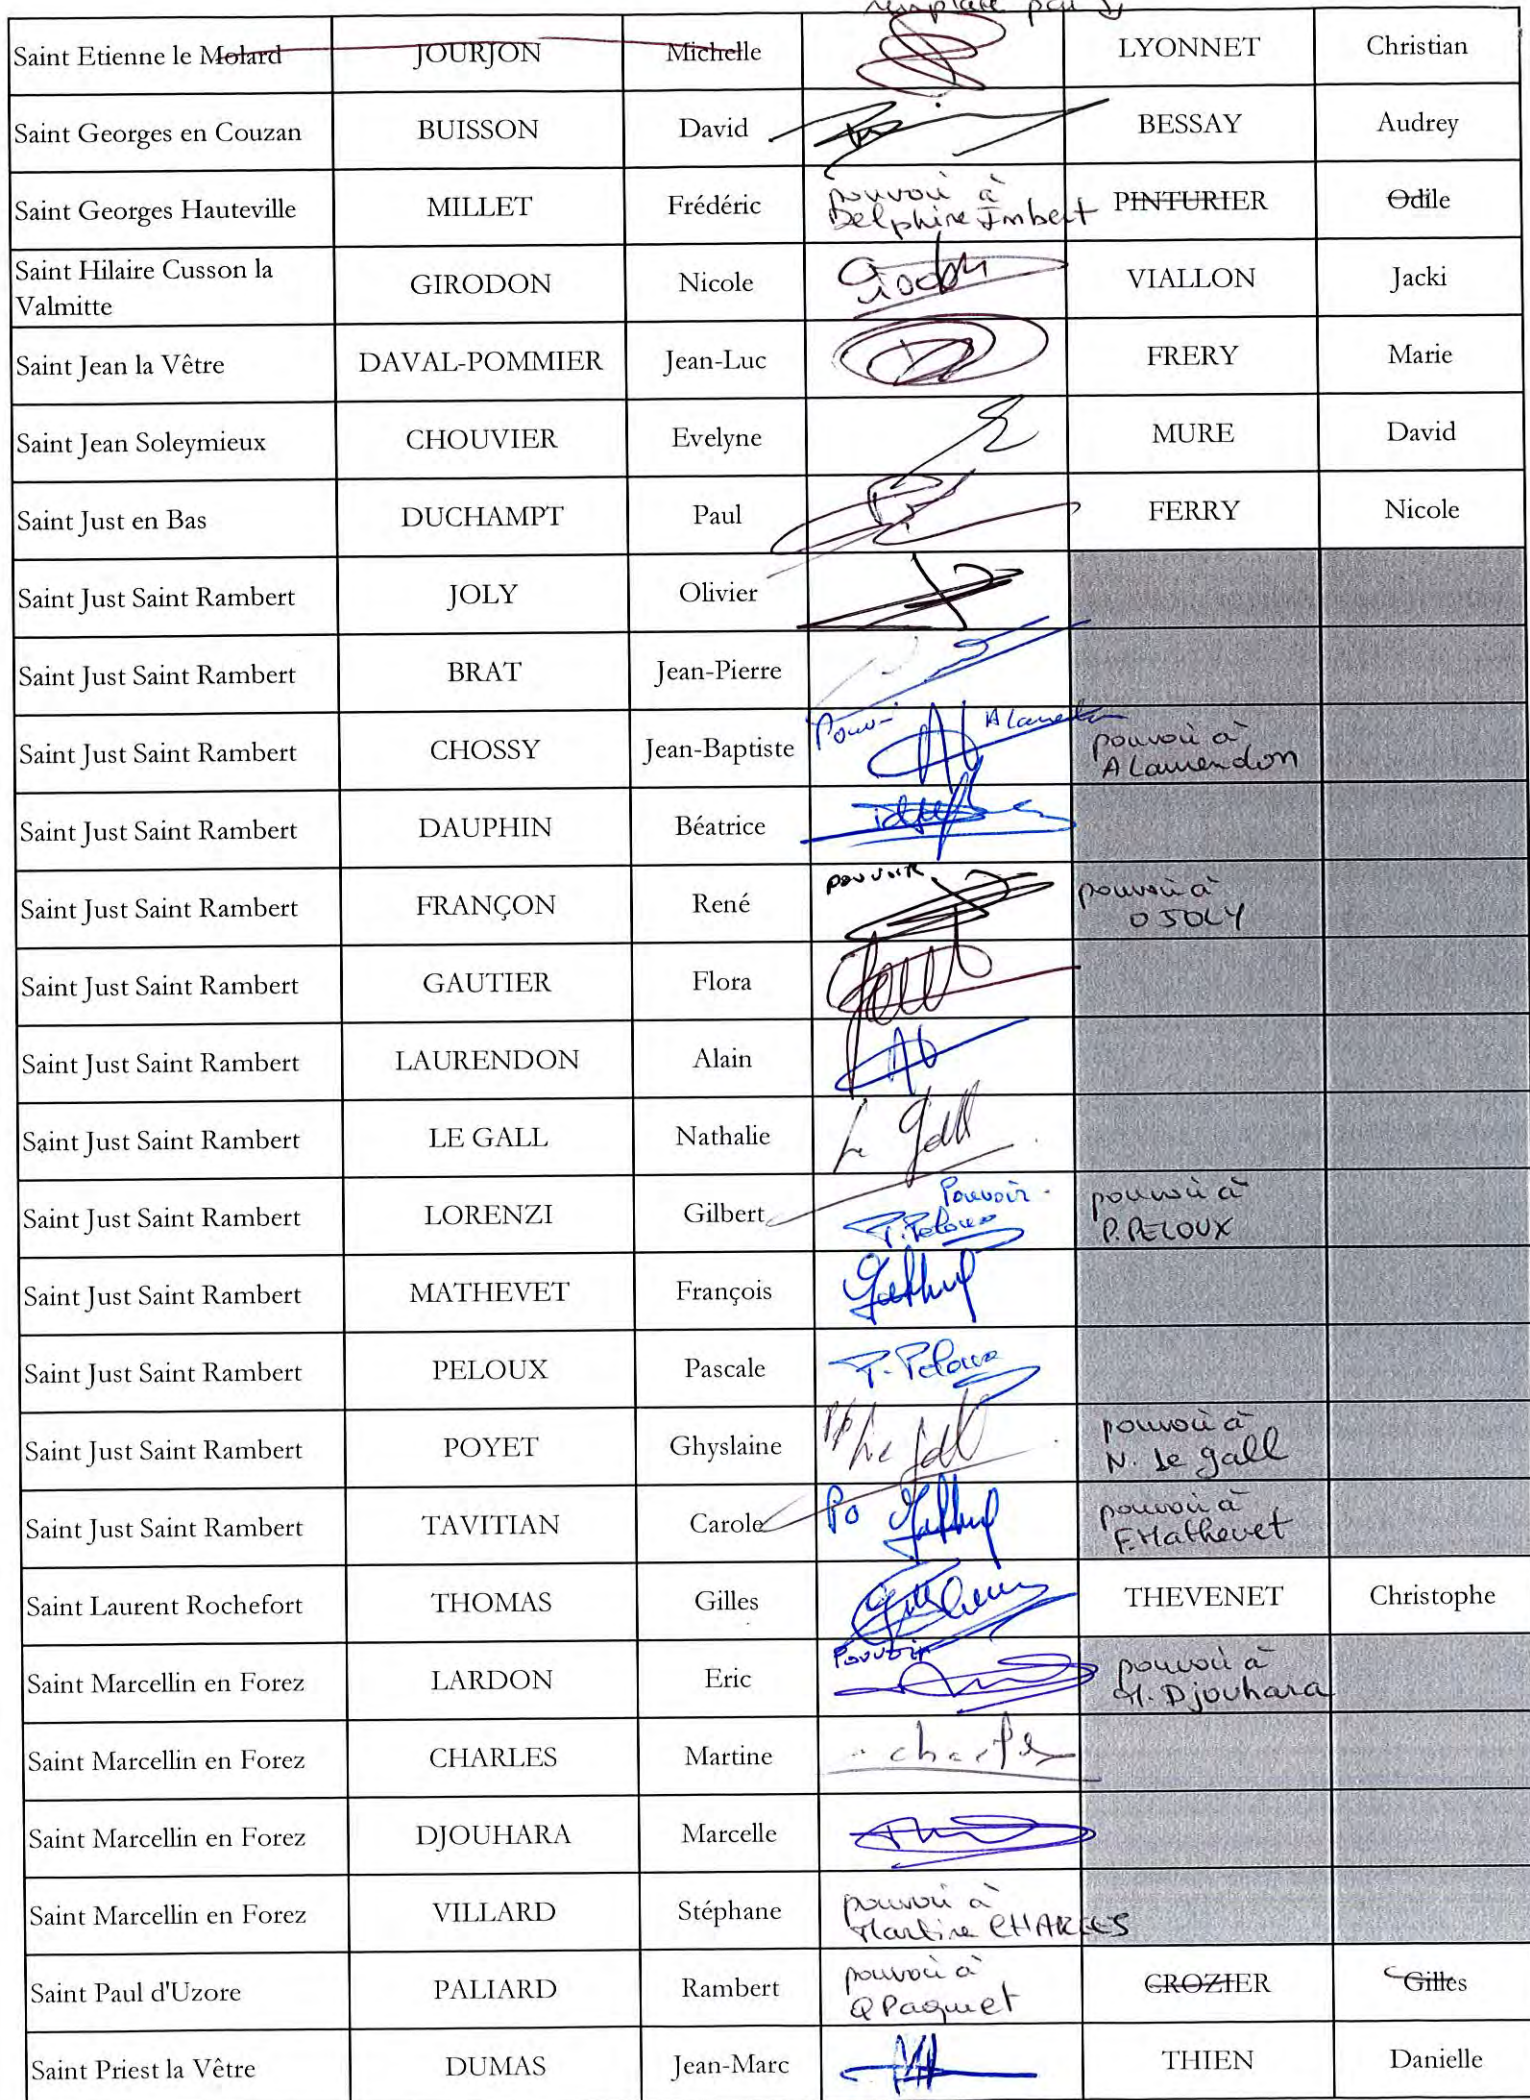 remplacé par
Saint Etienne le Molard JOURJON Michelle LYONNET Christian
Saint Georges en Couzan BUISSON David BESSAY Audrey
Saint Georges Hauteville MILLET Frédéric pouvoir à PINTURIER Odile
Delphine Imbert
Saint Hilaire Cusson la
Valmitte GIRODON Nicole VIALLON Jacki
Saint Jean la Vêtre DAVAL-POMMIER Jean-Luc FRERY Marie
Saint Jean Soleymieux CHOUVIER Evelyne MURE David
Saint Just en Bas DUCHAMPT Paul FERRY Nicole
Saint Just Saint Rambert JOLY Olivier
Saint Just Saint Rambert BRAT Jean-Pierre
Saint Just Saint Rambert CHOSSY Jean-Baptiste Pouvoir A Laurendon pouvoir à
A Laurendon
Saint Just Saint Rambert DAUPHIN Béatrice
Saint Just Saint Rambert FRANÇON René pouvoir pouvoir à
O JOLY
Saint Just Saint Rambert GAUTIER Flora
Saint Just Saint Rambert LAURENDON Alain
Saint Just Saint Rambert LE GALL Nathalie Le Gall
Saint Just Saint Rambert LORENZI Gilbert Pouvoir pouvoir à
P. Peloux P. PELOUX
Saint Just Saint Rambert MATHEVET François
Saint Just Saint Rambert PELOUX Pascale P. Peloux
Saint Just Saint Rambert POYET Ghyslaine Le Gall pouvoir à
N. Le gall
Saint Just Saint Rambert TAVITIAN Carole Po pouvoir à
F. Mathevet
Saint Laurent Rochefort THOMAS Gilles THEVENET Christophe
Saint Marcellin en Forez LARDON Eric Pouvoir pouvoir à
M. Djouhara
Saint Marcellin en Forez CHARLES Martine
Saint Marcellin en Forez DJOUHARA Marcelle
Saint Marcellin en Forez VILLARD Stéphane pouvoir à
Martine CHARLES
Saint Paul d'Uzore PALIARD Rambert pouvoir à CROZIER Gilles
Q Paquet
Saint Priest la Vêtre DUMAS Jean-Marc THIEN Danielle